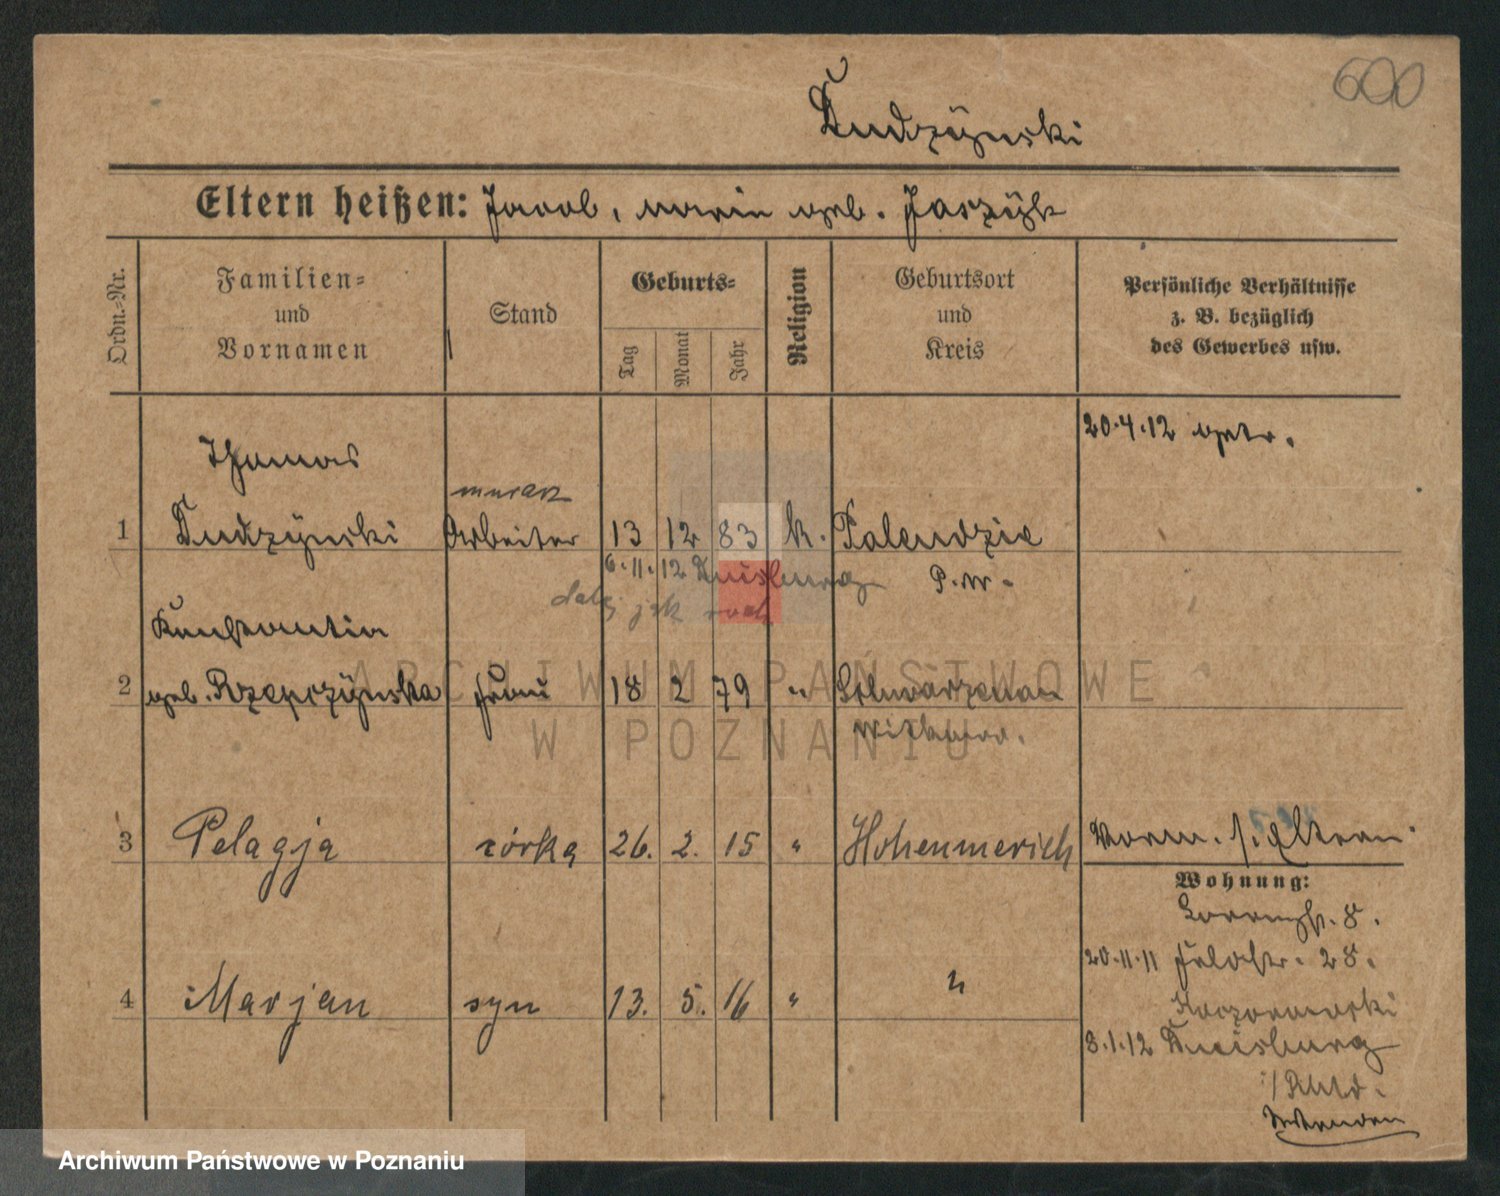 600
Dudzÿnski
Eltern heißen: Jacob, Marie geb. Jaszÿk
Ordn.-Nr.
Familien- und Vornamen
Stand
Geburts-
Tag
Monat
Jahr
Religion
Geburtsort und Kreis
Persönliche Verhältnisse z. B. bezüglich des Gewerbes usw.
20.4.12 getr.
Thomas
murarz
1 Dudzÿnski Arbeiter 13 12 83 k. Palendzie
6.11.12 Duisburg P. W.
dalej jak ruch
Konstantia
2 geb. Rzepczÿnska Frau 18 2 79 " Schwarzenau
Witkowo.
3 Pelagja córka 26. 2. 15 " Hohenmerich Vorm. s. Eltern
Wohnung:
8.
20.11.11 Feldstr. 28.
Kaczorowski
4 Marjan syn 13. 5. 16 " "
3.1.12 Duisburg
ARCHIWUM PAŃSTWOWE
W POZNANIU
Archiwum Państwowe w Poznaniu